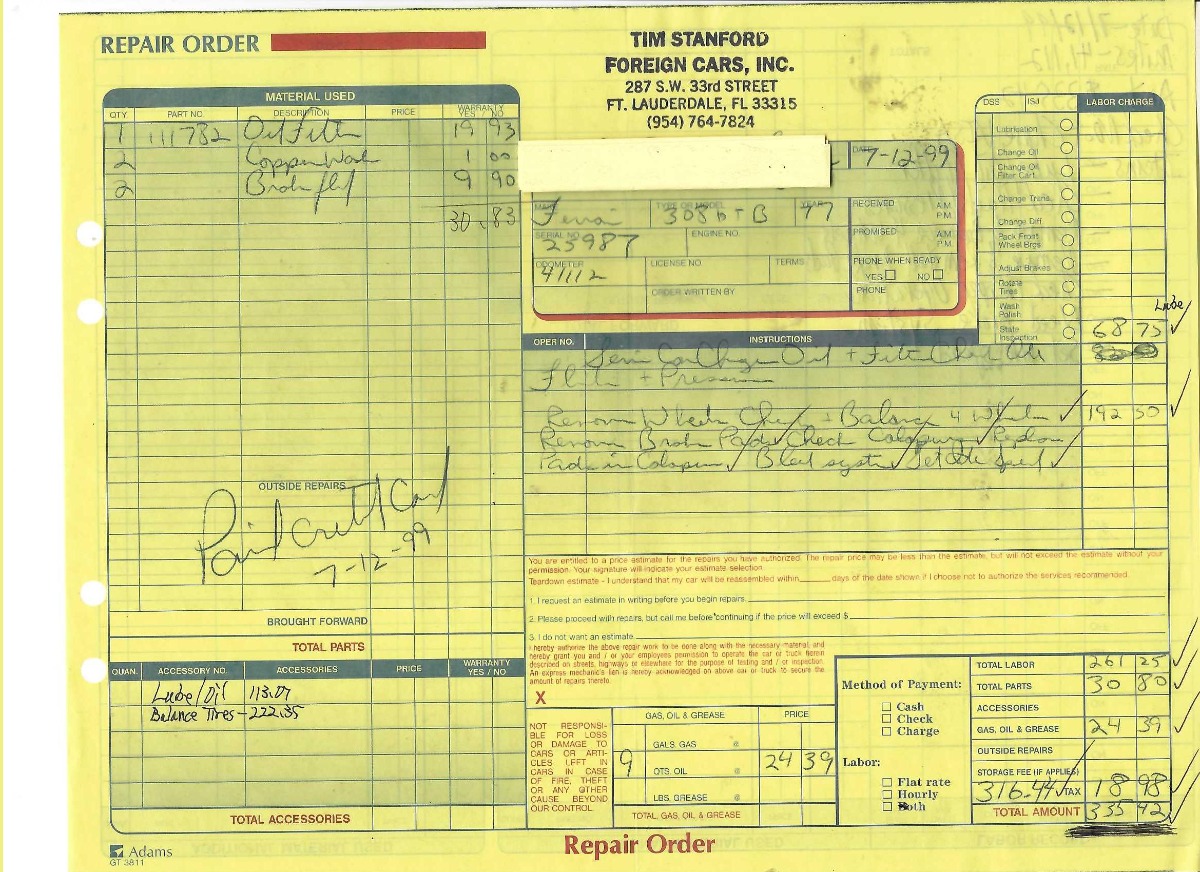 REPAIR ORDER
TIM STANFORD
FOREIGN CARS, INC.
287 S.W. 33rd STREET
FT. LAUDERDALE, FL 33315
(954) 764-7824
MATERIAL USED
QTY PART NO. DESCRIPTION PRICE WARRANTY YES / NO
1 111782 Oil Filter 19 93
2 Copper 1 00
2 9 90
30.83
OUTSIDE REPAIRS
Paid Credit Card
7-12-99
BROUGHT FORWARD
TOTAL PARTS
QUAN. ACCESSORY NO. ACCESSORIES PRICE WARRANTY YES / NO
Lube/Oil 113.07
Balance Tires - 222.35
TOTAL ACCESSORIES
DATE 7-12-99
MAKE TYPE OR MODEL YEAR RECEIVED A.M. P.M.
Ferrari 308 GTB 77
SERIAL NO. ENGINE NO. PROMISED A.M. P.M.
23987
ODOMETER LICENSE NO. TERMS PHONE WHEN READY
41112 YES NO
ORDER WRITTEN BY PHONE
DSS ISJ LABOR CHARGE
Lubrication
Change Oil
Change Oil Filter Cart.
Change Trans.
Change Diff.
Pack Front Wheel Brgs.
Adjust Brakes
Rotate Tires
Wash Polish
Lube
State Inspection 68 75
OPER NO. INSTRUCTIONS
Car Change Oil + Filter Check
+ Pressures
Remove Wheels + Balance 4 192 50
Remove Brake Pads Check
Pads in Bleed system Set
You are entitled to a price estimate for the repairs you have authorized. The repair price may be less than the estimate, but will not exceed the estimate without your
permission. Your signature will indicate your estimate selection.
Teardown estimate - I understand that my car will be reassembled within ______ days of the date shown if I choose not to authorize the services recommended.
1. I request an estimate in writing before you begin repairs.
2. Please proceed with repairs, but call me before continuing if the price will exceed $
3. I do not want an estimate.
I hereby authorize the above repair work to be done along with the necessary material, and
hereby grant you and / or your employees permission to operate the car or truck herein
described on streets, highways or elsewhere for the purpose of testing and / or inspection.
An express mechanic's lien is hereby acknowledged on above car or truck to secure the
amount of repairs thereto.
X
NOT RESPONSI-
BLE FOR LOSS
OR DAMAGE TO
CARS OR ARTI-
CLES LEFT IN
CARS IN CASE
OF FIRE, THEFT
OR ANY OTHER
CAUSE BEYOND
OUR CONTROL.
GAS, OIL & GREASE PRICE
GALS. GAS @
9 QTS. OIL @ 24 39
LBS. GREASE @
TOTAL, GAS, OIL & GREASE
Method of Payment:
Cash
Check
Charge
Labor:
Flat rate
Hourly
Both
TOTAL LABOR 261 25
TOTAL PARTS 30 80
ACCESSORIES
GAS, OIL & GREASE 24 39
OUTSIDE REPAIRS
STORAGE FEE (IF APPLIES)
316.44 TAX 18 98
TOTAL AMOUNT 335 42
Adams
GT 3811
Repair Order